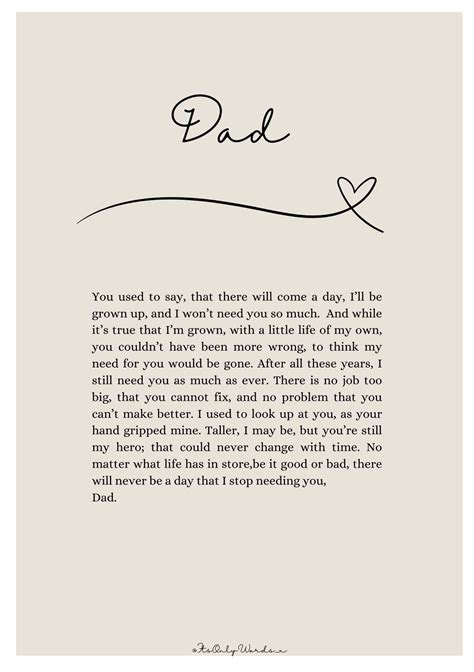 Dad
You used to say, that there will come a day, I’ll be
grown up, and I won’t need you so much. And while
it’s true that I’m grown, with a little life of my own,
you couldn’t have been more wrong, to think my
need for you would be gone. After all these years, I
still need you as much as ever. There is no job too
big, that you cannot fix, and no problem that you
can’t make better. I used to look up at you, as your
hand gripped mine. Taller, I may be, but you’re still
my hero; that could never change with time. No
matter what life has in store,be it good or bad, there
will never be a day that I stop needing you,
Dad.
@ItsOnlyWords_x